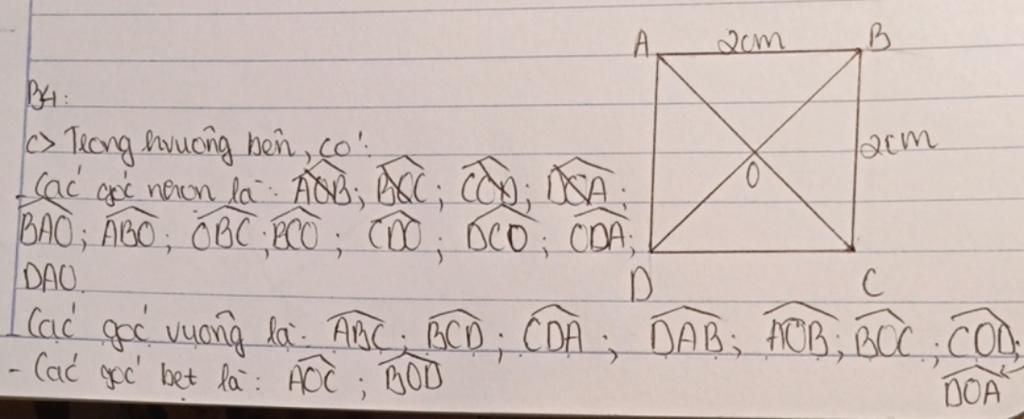 A 2cm B
B4:
c> Trong hvuông bên, có:
2cm
- Các góc nhọn là: AOB; BOC; COD; DOA;
O
BAO; ABO; OBC; BCO; CDO; DCO; ODA;
DAO.
D C
- Các góc vuông là: ABC; BCD; CDA; DAB; AOB; BOC; COD;
DOA
- Các góc bẹt là: AOC; BOD